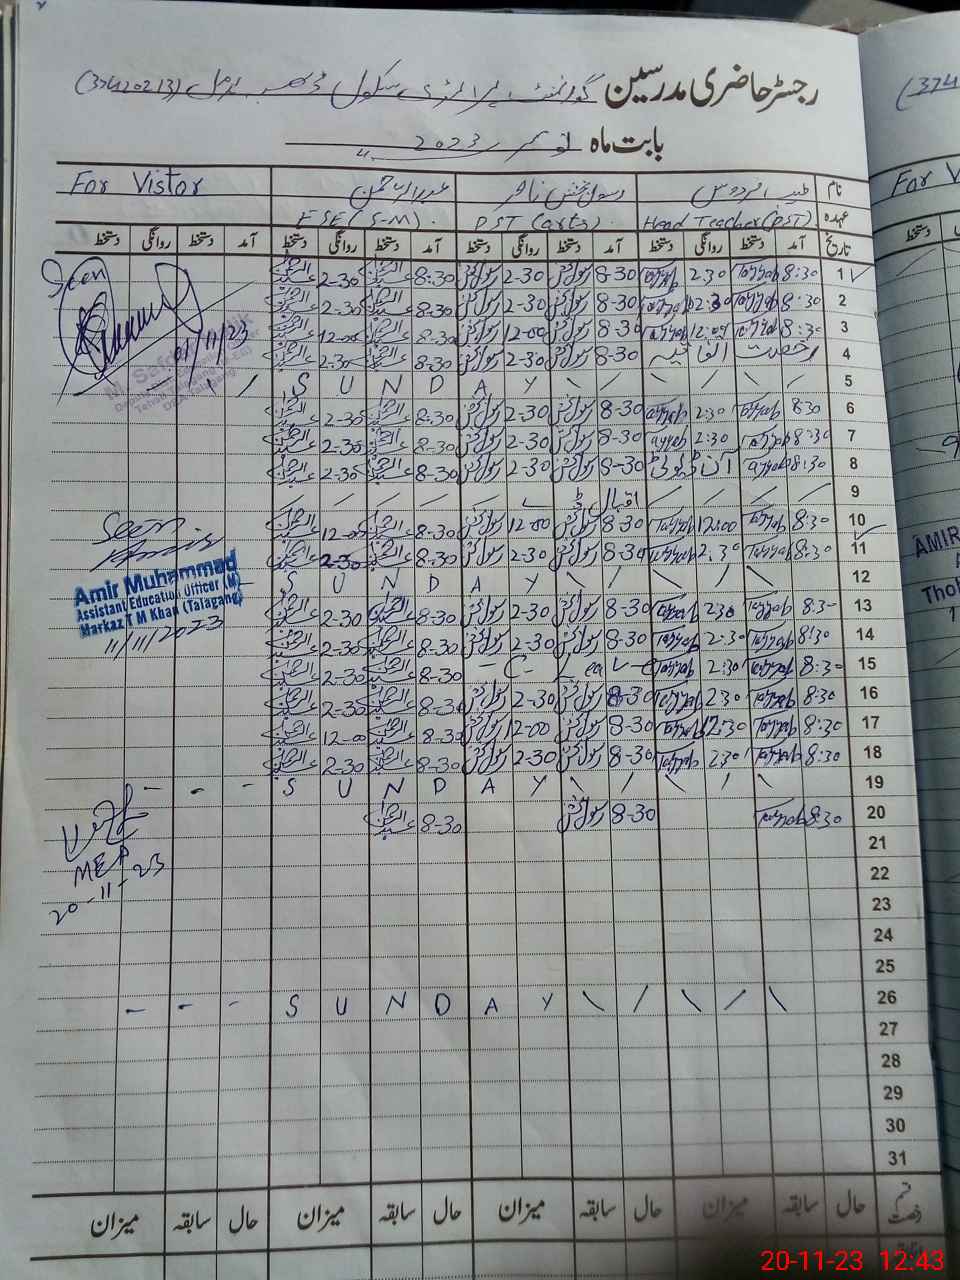 رجسٹر حاضری مدرسین گورنمنٹ پرائمری سکول (37420213)
بابت ماہ نومبر 2023ء
نام طیب فردوس رسول بخش ناصر عبدالرحمن For Vistor
عہدہ Head Teacher (PST) PST (arts) ESE (S-M)
تاریخ آمد دستخط روانگی دستخط آمد دستخط روانگی دستخط آمد دستخط روانگی دستخط آمد دستخط روانگی دستخط
1 8:30 Tayyab 2:30 Tayyab 8-30 رسول بخش 2-30 رسول بخش 8:30 عبدالرحمن 2-30 عبدالرحمن Seen
2 8:30 Tayyab 2:30 Tayyab 8-30 رسول بخش 2-30 رسول بخش 8-30 عبدالرحمن 2-30 عبدالرحمن
3 8:30 Tayyab 12:00 Tayyab 8-30 رسول بخش 12-00 رسول بخش 8-30 عبدالرحمن 12-00 عبدالرحمن 01/11/23
4 رخصت اتفاقیہ 8-30 رسول بخش 2-30 رسول بخش 8-30 عبدالرحمن 2-30 عبدالرحمن
5 S U N D A Y
6 8:30 Tayyab 2:30 Tayyab 8-30 رسول بخش 2-30 رسول بخش 8-30 عبدالرحمن 2-30 عبدالرحمن
7 8:30 Tayyab 2:30 Tayyab 8-30 رسول بخش 2-30 رسول بخش 8-30 عبدالرحمن 2-30 عبدالرحمن
8 8:30 Tayyab آن ڈیوٹی 8-30 رسول بخش 2-30 رسول بخش 8-30 عبدالرحمن 2-30 عبدالرحمن
9 اقبال ڈے
10 8:30 Tayyab 12:00 Tayyab 8-30 رسول بخش 12-00 رسول بخش 8-30 عبدالرحمن 12-00 عبدالرحمن Seen
11 8:30 Tayyab 2:30 Tayyab 8-30 رسول بخش 2-30 رسول بخش 8-30 عبدالرحمن 2-30 عبدالرحمن
12 S U N D A Y
Amir Muhammad
Assistant Education Officer (M)
Markaz T M Khan (Talagang)
11/11/2023
13 8:30 Tayyab 2:30 Tayyab 8-30 رسول بخش 2-30 رسول بخش 8-30 عبدالرحمن 2-30 عبدالرحمن
14 8:30 Tayyab 2:30 Tayyab 8-30 رسول بخش 2-30 رسول بخش 8-30 عبدالرحمن 2-30 عبدالرحمن
15 8:30 Tayyab 2:30 Tayyab - C - Leave 8-30 عبدالرحمن 2-30 عبدالرحمن
16 8:30 Tayyab 2:30 Tayyab 8-30 رسول بخش 2-30 رسول بخش 8-30 عبدالرحمن 2-30 عبدالرحمن
17 8:30 Tayyab 12:30 Tayyab 8-30 رسول بخش 12-00 رسول بخش 8-30 عبدالرحمن 12-00 عبدالرحمن
18 8:30 Tayyab 2:30 Tayyab 8-30 رسول بخش 2-30 رسول بخش 8-30 عبدالرحمن 2-30 عبدالرحمن
19 S U N D A Y
20 8:30 Tayyab 8-30 رسول بخش 8-30 عبدالرحمن
21
MEA
22
20-11-23
23
24
25
26 S U N D A Y
27
28
29
30
31
قسم رخصت حال سابقہ میزان حال سابقہ میزان حال سابقہ میزان حال سابقہ میزان
(374
For V
دستخط
AMIR
20-11-23 12:43